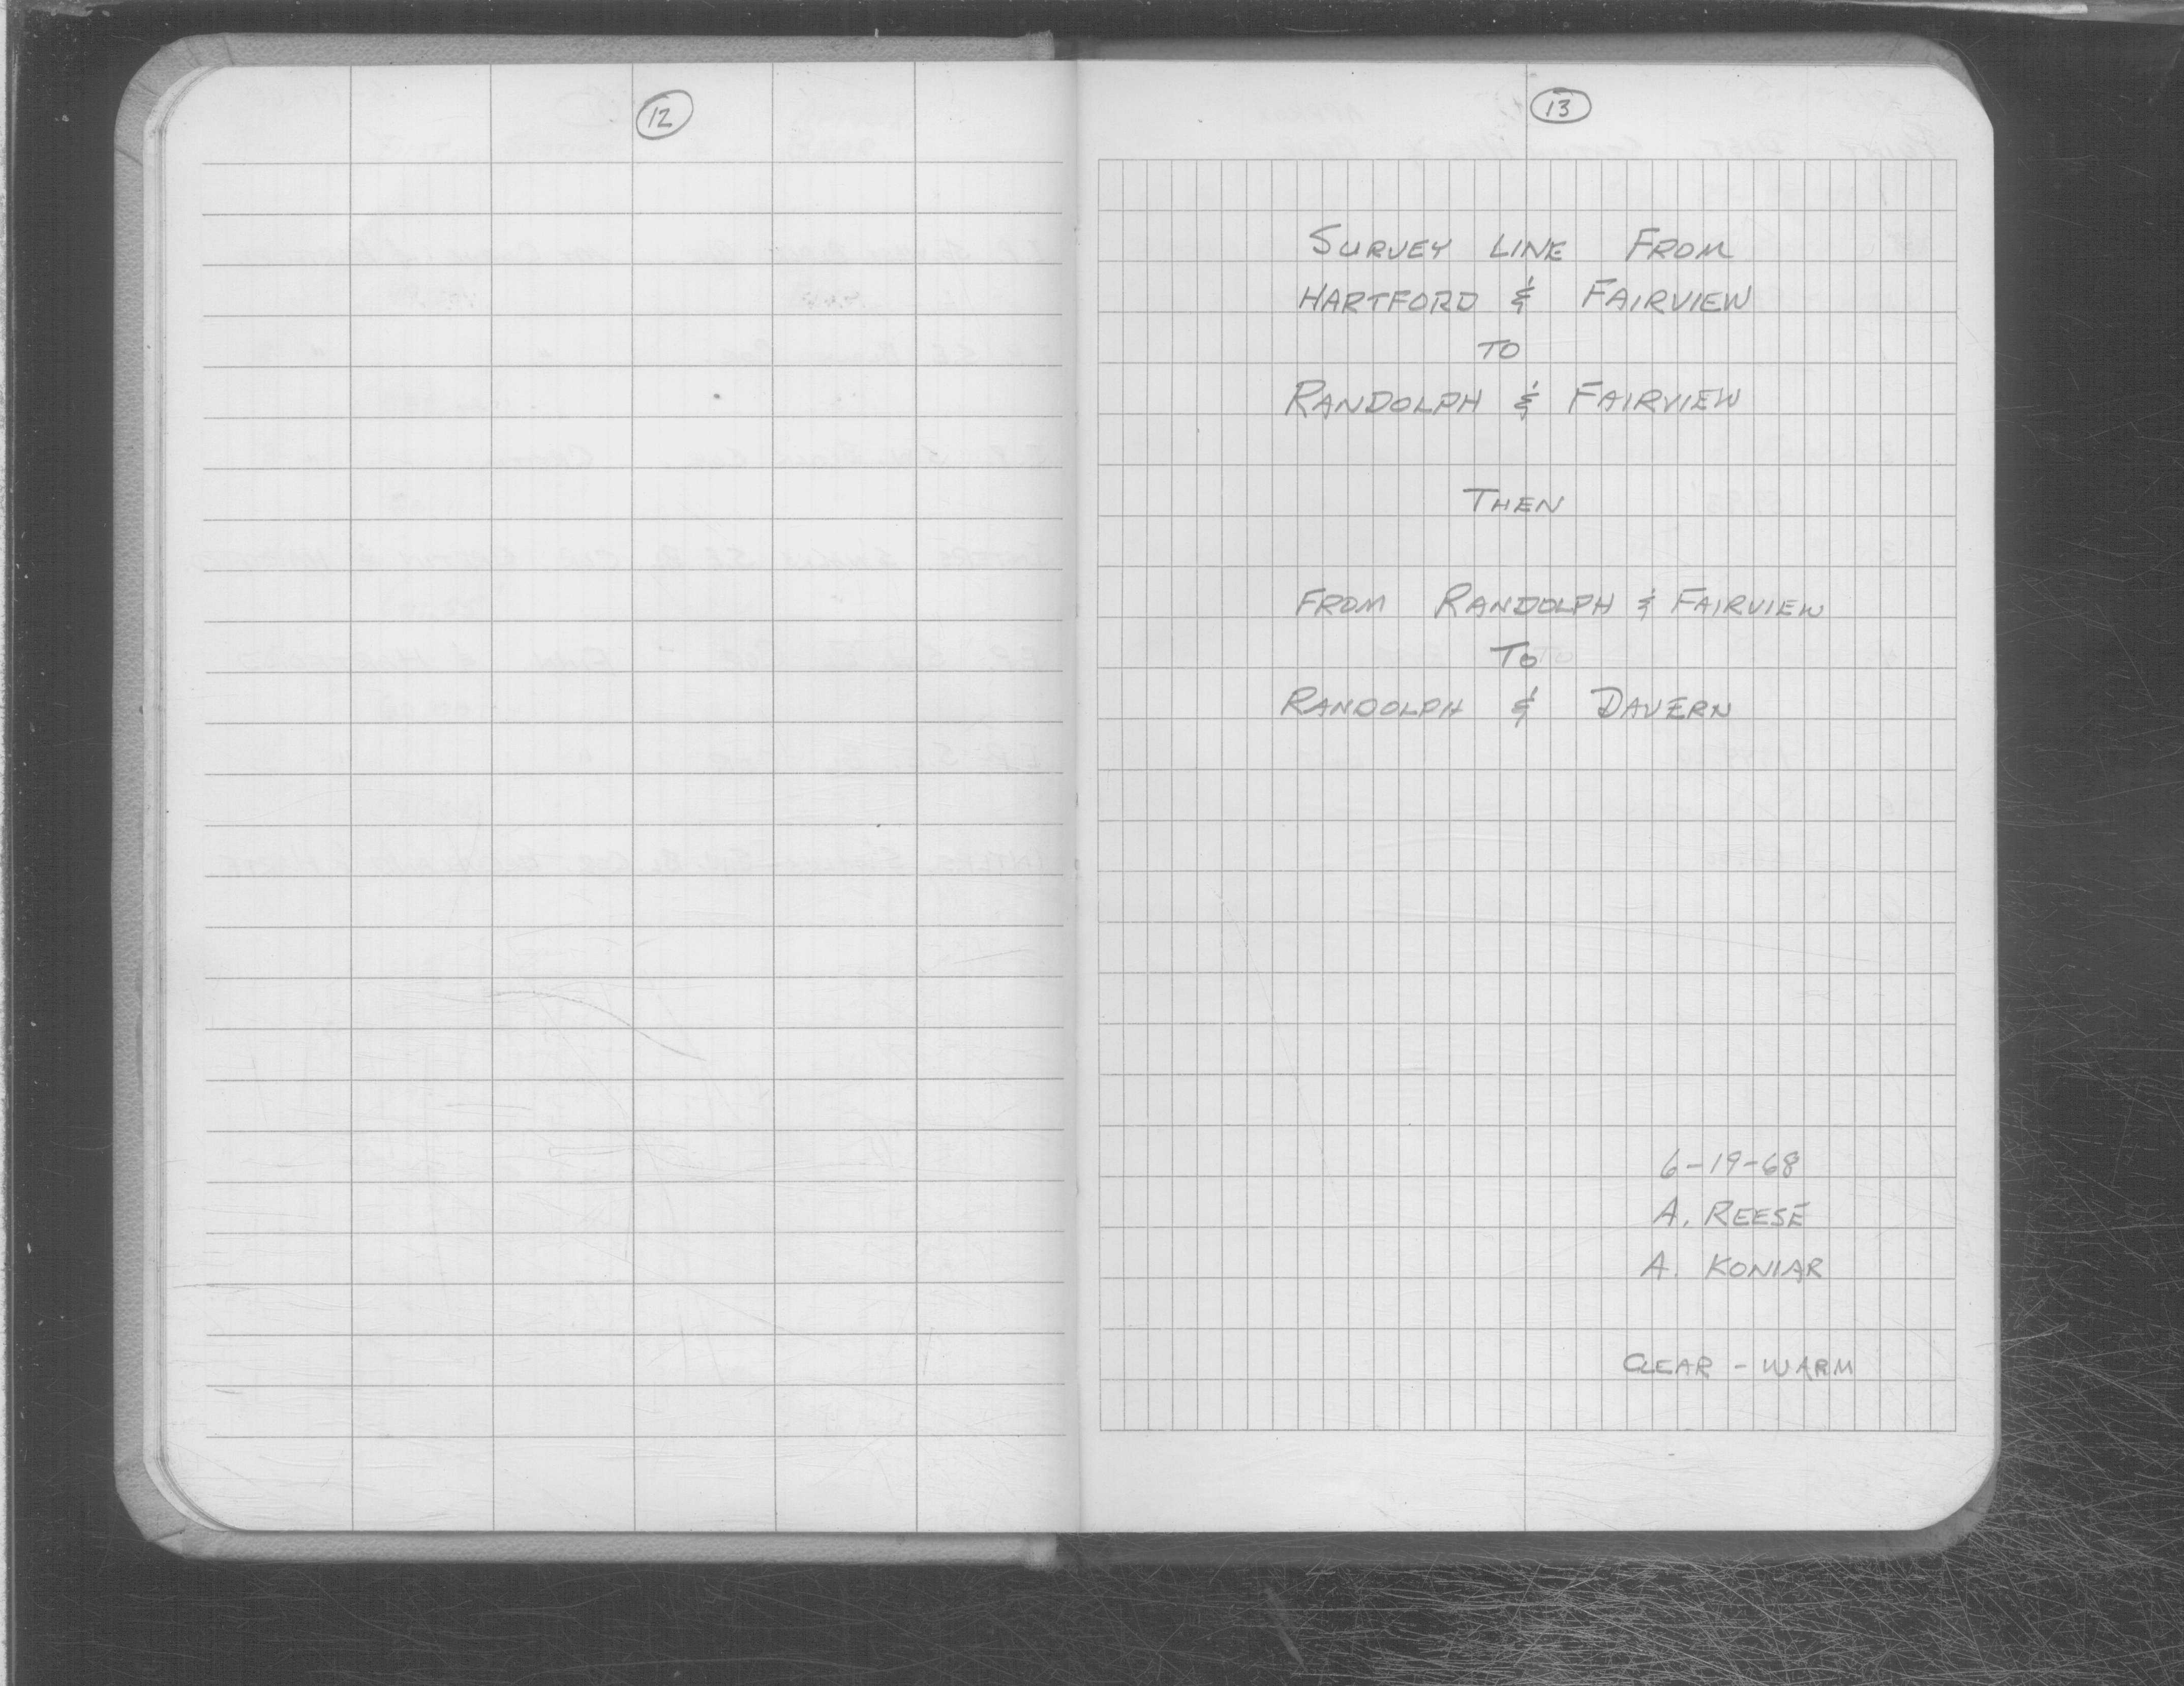 12
13
SURVEY LINE FROM
HARTFORD & FAIRVIEW
TO
RANDOLPH & FAIRVIEW
THEN
FROM RANDOLPH & FAIRVIEW
TO
RANDOLPH & DAVERN
6-19-68
A. REESE
A. KONIAR
CLEAR - WARM